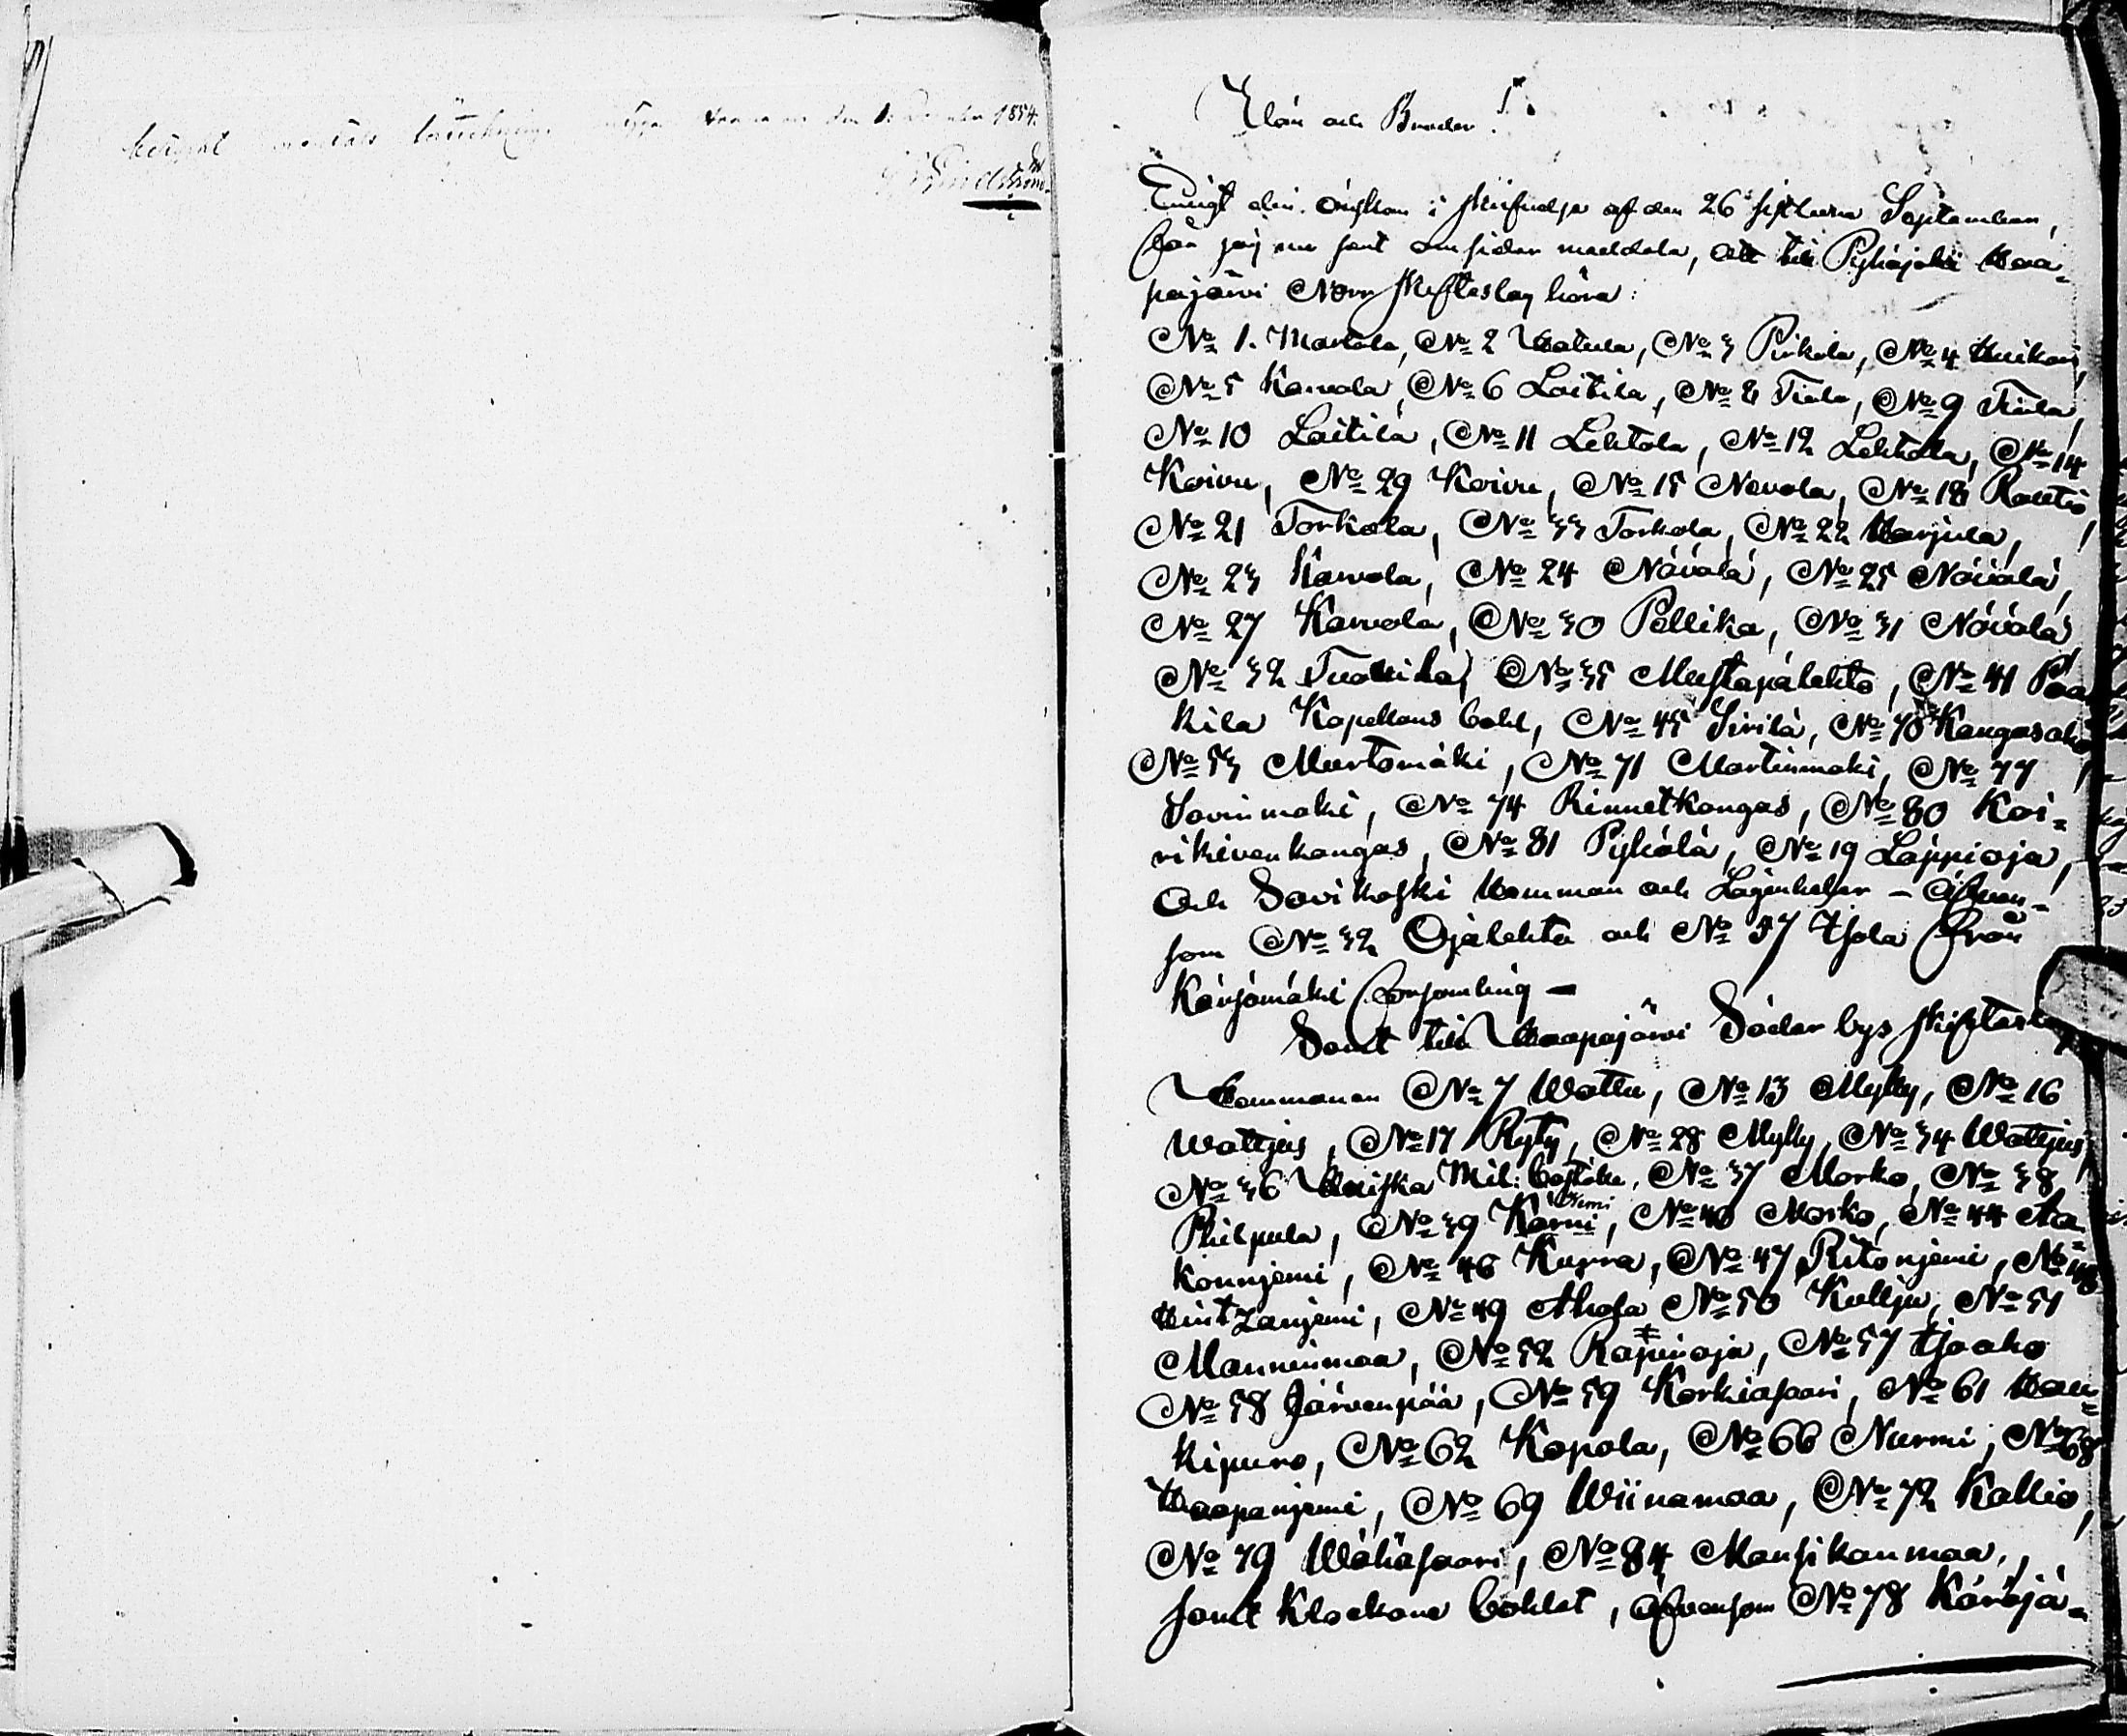 1854.
och Broder!
Enligt din önskan i skrifvelse af den 26 sistledne September,
får jag nu samt omsider meddela, att till Pyhäjoki Haa-
pajärvi Norr skifteslag höra:
№ 1. Martola, № 2 Watula, № 3 Pirkola, № 4
№ 5 Karvola, № 6 Laitila, № 8 Tiala, № 9 Tiala,
№ 10 Laitila, № 11 Lehtola, № 12 Lehtola, № 14
Koivu, № 29 Koivu, № 15 Nevola, № 18 Rautio,
№ 21 Torkola, № 33 Torkola, № 22 Harjula,
№ 23 Karvola, № 24 Növälä, № 25 Növälä,
№ 27 Karvola, № 30 Pellika, № 31 Növälä
№ 32 № 35 Mustapälehto, № 41 Paa
kila Kapellans bohl, № 45 Sirilä, № 70 Kangasaho
№ 53 Murtomäki, № 71 Martinmaki, № 77
Savinmaki, № 74 Rinnetkangas, № 80 Koi-
rikivenkangas, № 81 Pyhälä, № 19 Läppioja,
och Savikoski Hemman och Lägenheter – äfven-
som № 32 Ojalehto och № 37 från
Kärsämäki församling –
Samt till Haapajärvi Söder bys skifteslag
Hemmanen № 7 Wattu, № 13 Mylly, № 16
Wattjus, № 17 Ryty, № 28 Mylly, № 34 Wattjus,
№ 36 Mil: boställe, № 37 Marko, № 38
Philpula, № 39 Karni, № 40 Marko, № 44 Aa-
konnjemi, № 46 Kurra, № 47 Ritonjemi, № 48
Hintzanjemi, № 49 Ahola № 50 Kullju, № 51
Manninmaa, № 52 Rapinoja, № 57
№ 58 Järvenpää, № 59 Korkiasaari, № 61 Hau-
kipuro, № 62 Kopola, № 66 Nurmi, № 68
Haapanjemi, № 69 Wiinamaa, № 72 Kallio,
№ 79 Wähäsaari, № 84 Mansikanmaa,
samt Klockare bohlet, äfvensom № 78 Käräjä-